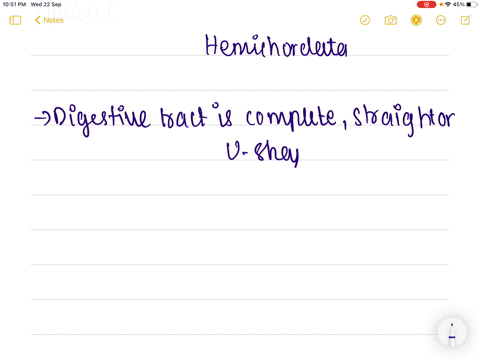 10:51 PM Wed 22 Sep
45%
Notes
Hemichordata
→Digestive tract is complete, straight or
U-shap